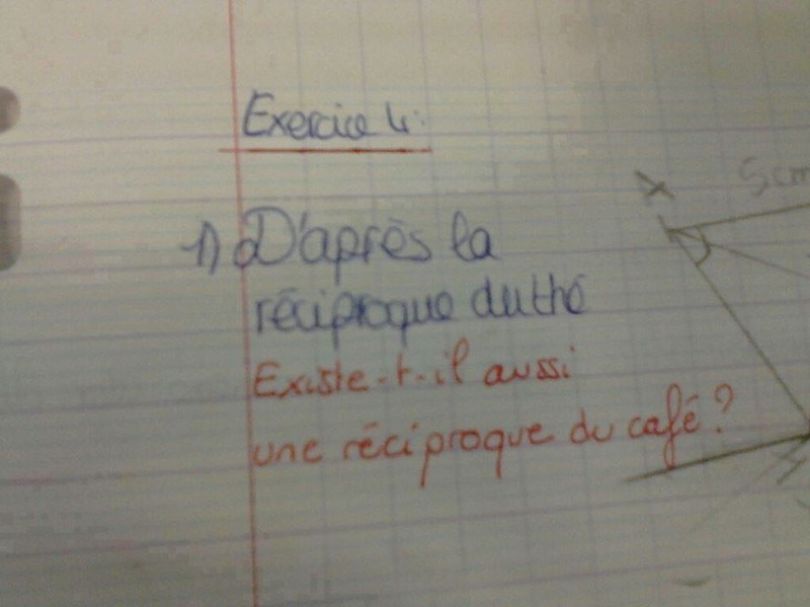 Exercice 4:
1) D'après la
réciproque du thé
Existe-t-il aussi
une réciproque du café?
x
5cm